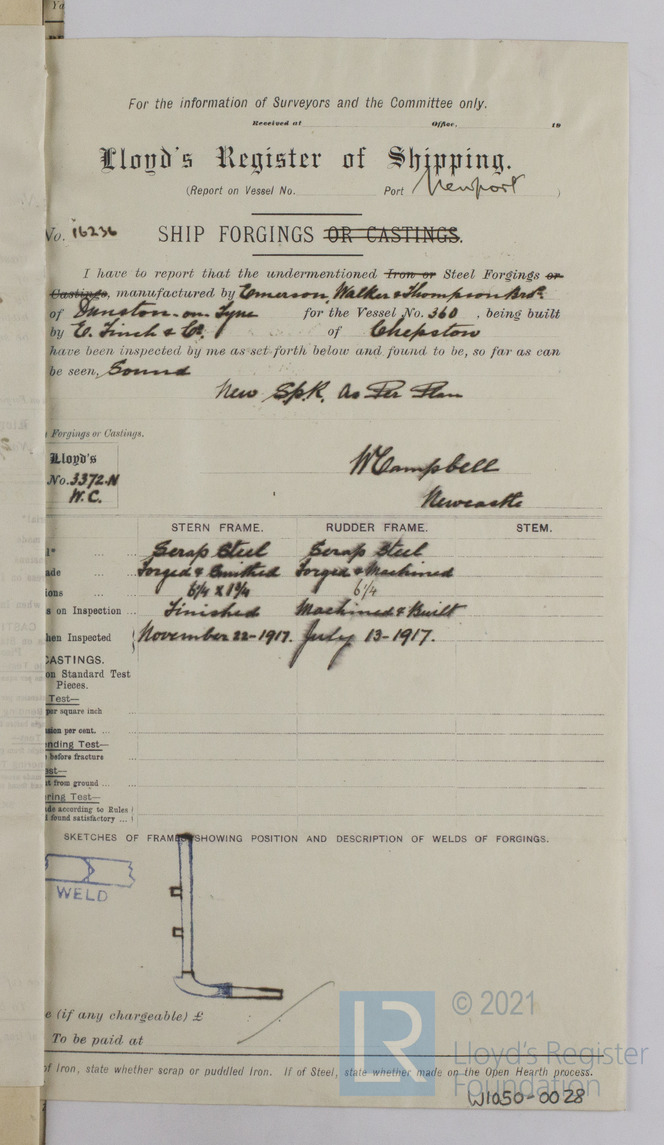 For the information of Surveyors and the Committee only.
Received at Office, 19
Lloyd's Register of Shipping.
(Report on Vessel No. Port Newport )
No. 16236 SHIP FORGINGS OR CASTINGS.
I have to report that the undermentioned Iron or Steel Forgings or
Castings, manufactured by Emerson, Walker & Thompson Bros.
of Dunston-on-Tyne for the Vessel No. 360, being built
by E. Finch & Co., of Chepstow
have been inspected by me as set forth below and found to be, so far as can
be seen, Sound
New Spk. As Per Plan
Forgings or Castings.
Lloyd's
No. 3372.N
W.C.
W Campbell
Newcastle
STERN FRAME. RUDDER FRAME. STEM.
Scrap Steel Scrap Steel
Forged & Smithed Forged & Machined
6¼ x 1¾ 6¼
s on Inspection ... Finished Machined & Built
hen Inspected November 22-1917. July 13-1917.
CASTINGS.
on Standard Test
Pieces.
Test—
per square inch
sion per cent. ...
nding Test—
before fracture
st—
t from ground ...
ring Test—
de according to Rules
found satisfactory ...
SKETCHES OF FRAMES SHOWING POSITION AND DESCRIPTION OF WELDS OF FORGINGS.
WELD
e (if any chargeable) £ : :
To be paid at
of Iron, state whether scrap or puddled Iron. If of Steel, state whether made on the Open Hearth process.
LR
© 2021
Lloyd's Register
Foundation
W1050-0028